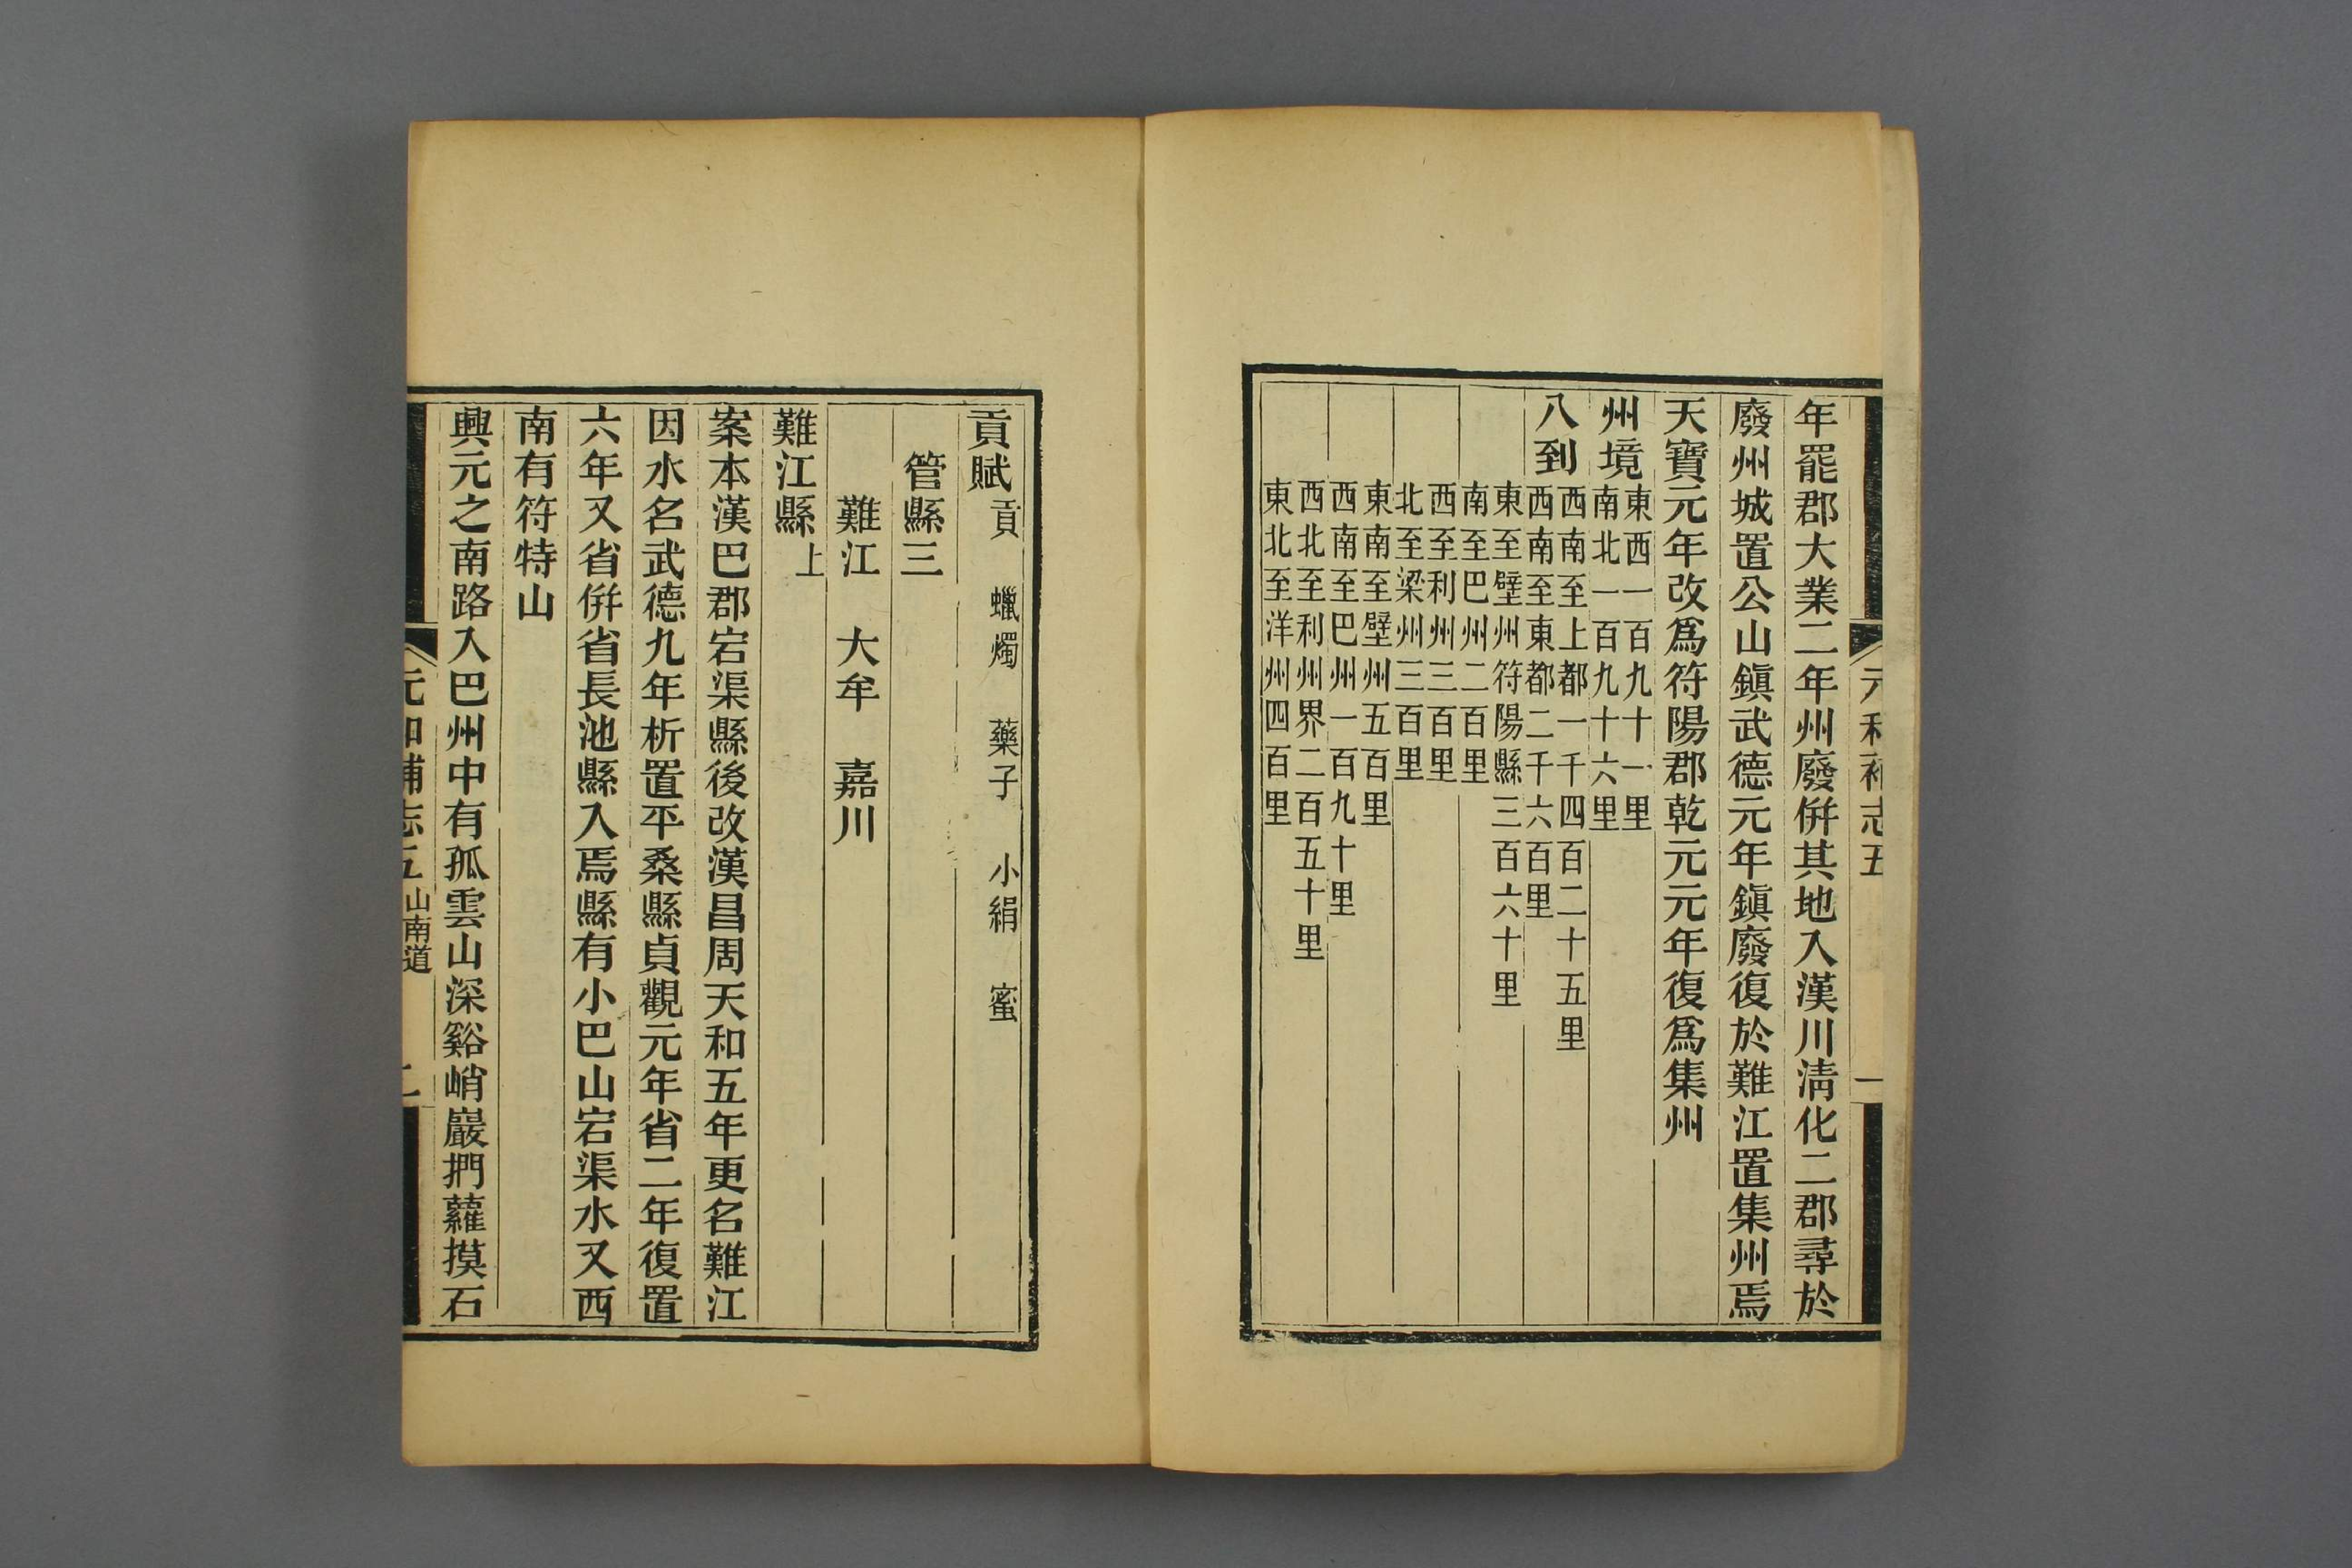 元和補志五
一
年罷郡大業二年州廢併其地入漢川清化二郡尋於
廢州城置公山鎮武德元年鎮廢復於難江置集州焉
天寶元年改爲符陽郡乾元元年復爲集州
州境
東西一百九十一里
南北一百九十六里
八到
西南至上都一千四百二十五里
西南至東都二千六百里
東至壁州符陽縣三百六十里
南至巴州二百里
西至利州三百里
北至梁州三百里
東南至壁州五百里
西南至巴州一百九十里
西北至利州界二百五十里
東北至洋州四百里
貢賦
貢 蠟燭 藥子 小絹 蜜
管縣三
難江 大牟 嘉川
難江縣上
案本漢巴郡宕渠縣後改漢昌周天和五年更名難江
因水名武德九年析置平桑縣貞觀元年省二年復置
六年又省併省長池縣入焉縣有小巴山宕渠水又西
南有符特山
興元之南路入巴州中有孤雲山深谿峭巖捫蘿摸石
元和補志五 山南道
二